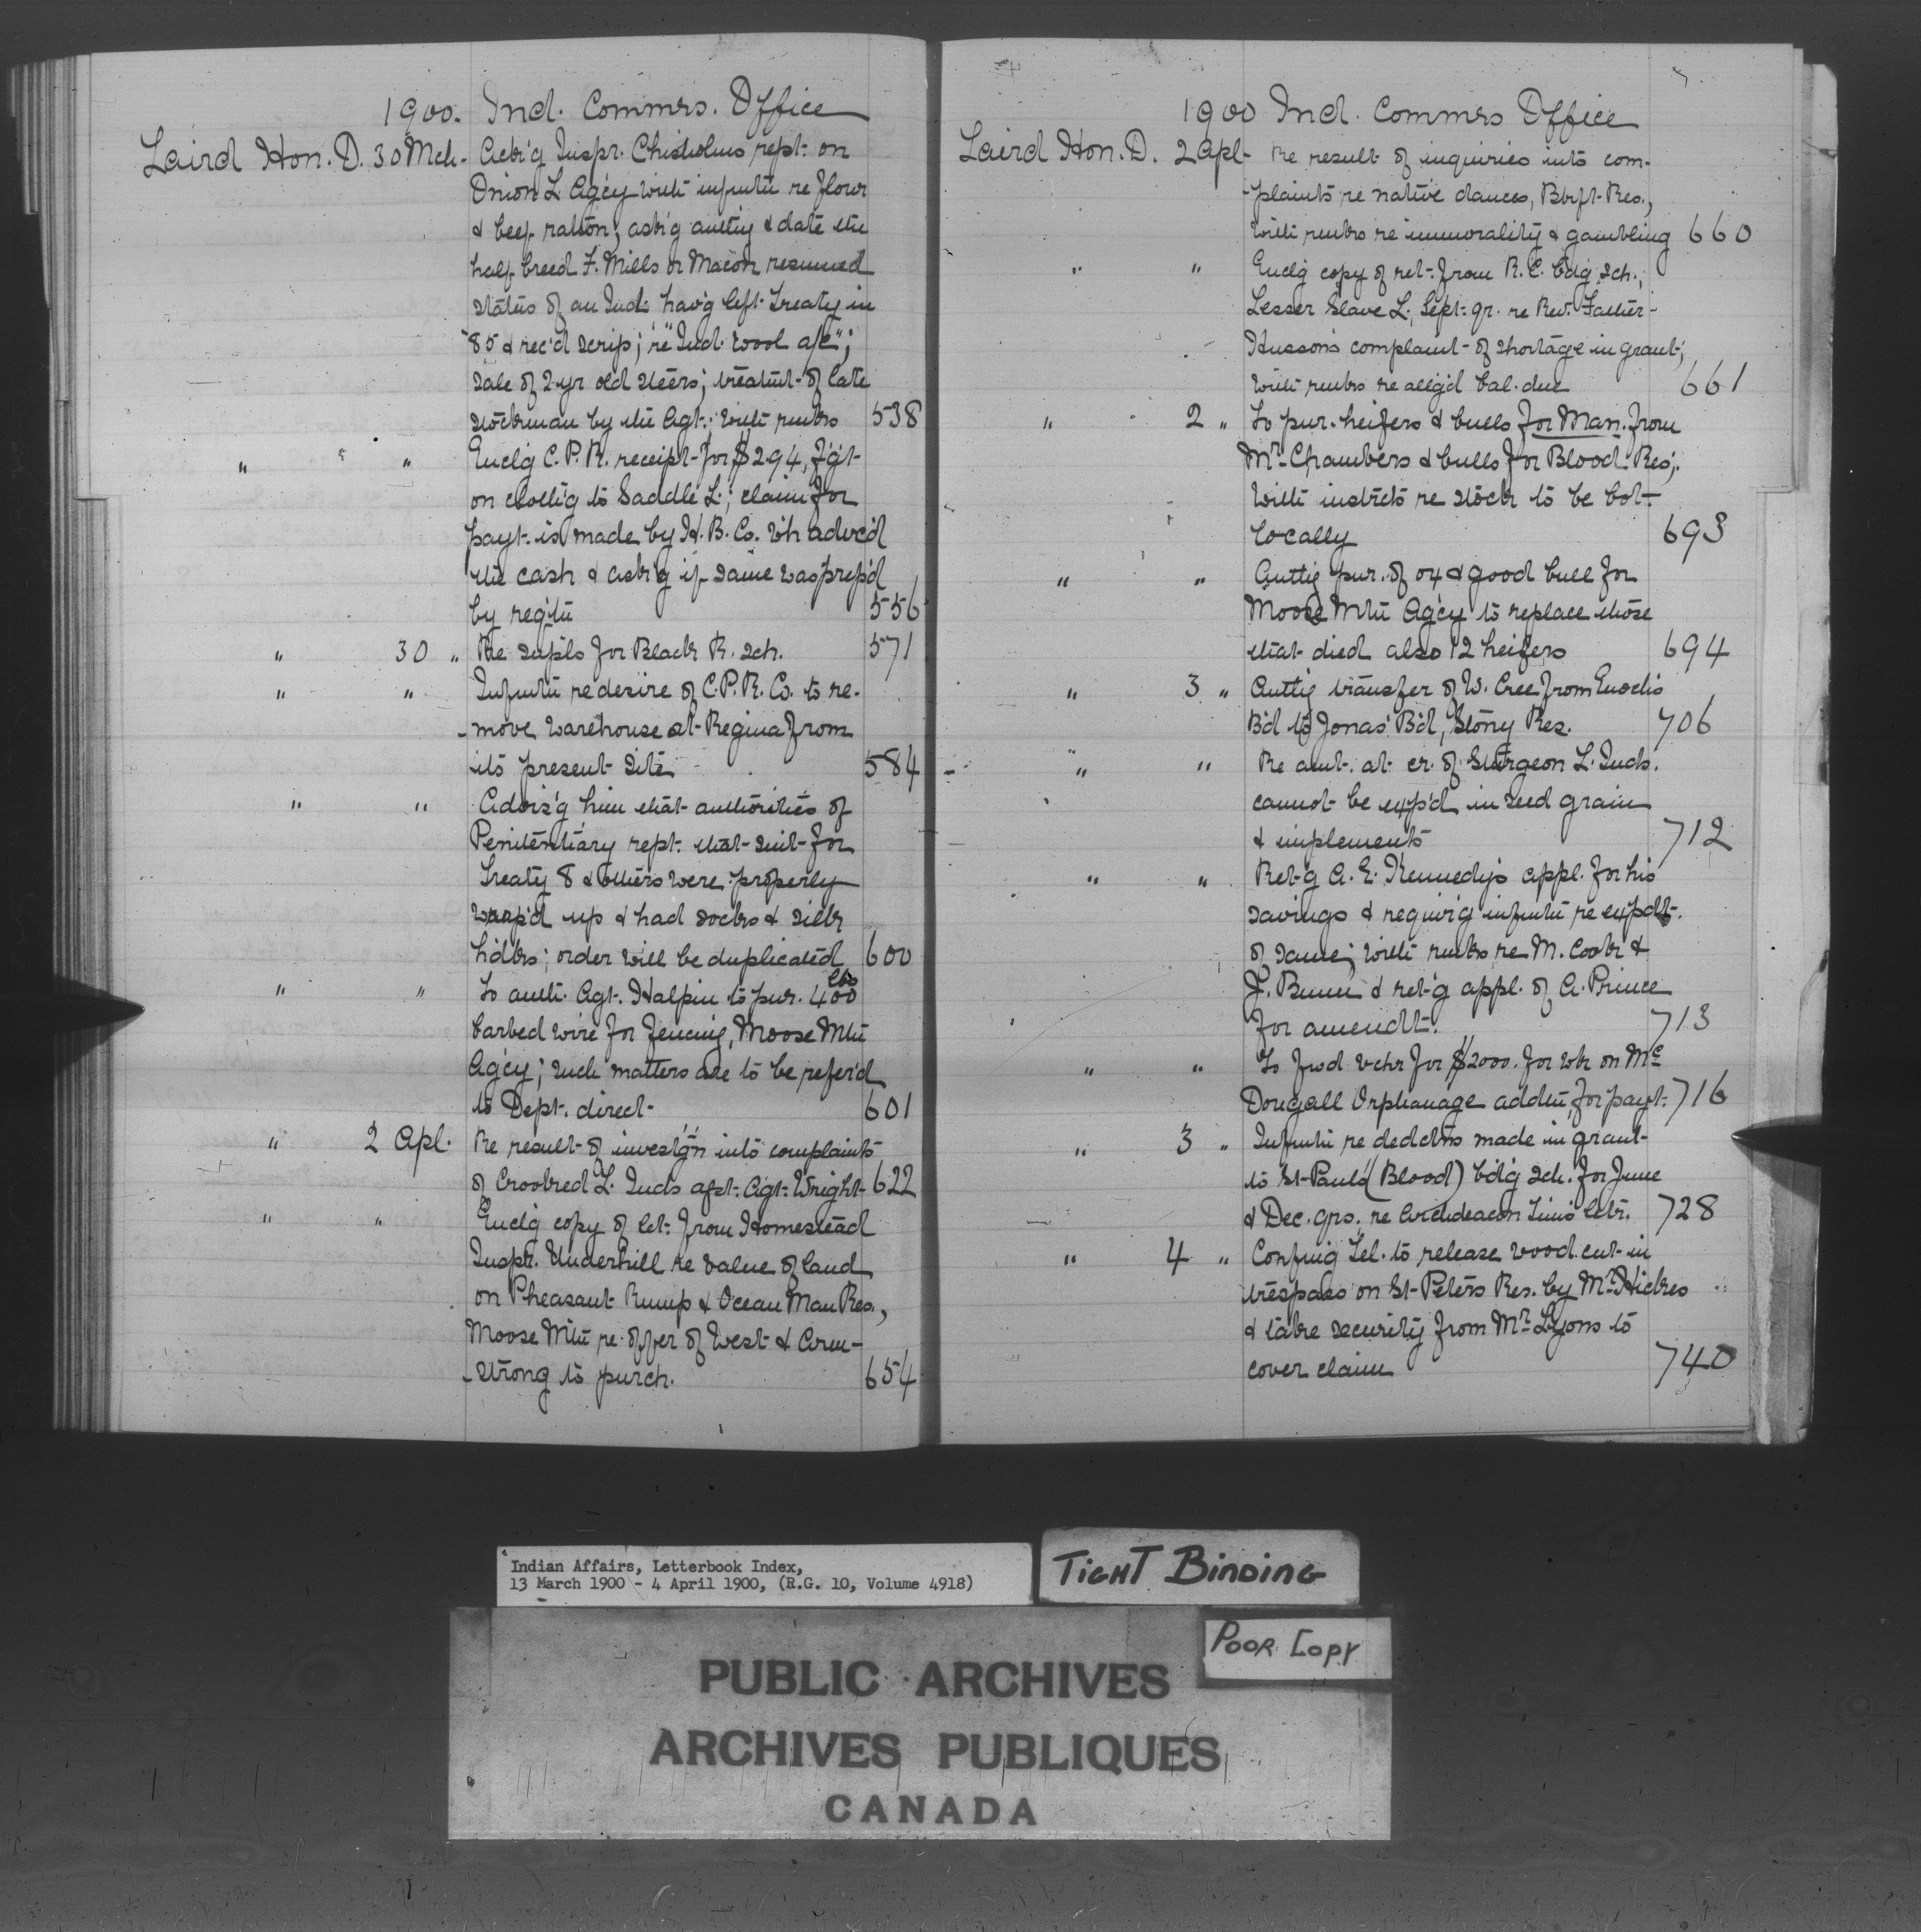 1900. Ind. Commrs. Office
Laird Hon. D. 30 Mch. Ack'g Inspr. Chisholms rept. on
Onion L. Agcy with infmtn re flour
& beef ration; ask'g authy & date the
half breed F. Mills or Macon resumed
status of an Ind. hav'g left Treaty in
'85 & rec'd scrip; re "Ind. Wool a/c";
sale of 2-yr old steers; treatmt of late
stockman by the Agt.; with rmks 538
" " Enclg C. P. R. receipt for $2.94, fgt
on cloth'g to Saddle L.; claim for
payt. is made by H. B. Co. wh advc'd
the cash & ask'g if same was prep'd
by reg'tn 556
" 30 " Re supls for Black R. sch. 571
" " Infmtn re desire of C.P.R. Co. to re-
-move warehouse at Regina from
its present site 584
" " Advis'g him that authorities of
Penitentiary rept. that suit for
Treaty 8 & others were properly
wrap'd up & had socks & silk
hdks; order will be duplicated 600
" " To auth. Agt. Halpin to pur. 400 lbs
barbed wire for fencing, Moose Mtn
Agcy; such matters are to be refer'd
to Dept. direct 601
" 2 Apl. Re result of investg'n into complaints
of Crooked L. Inds agst. Agt. Wright 622
" " Enclg copy of let. from Homestead
Inspr. Underhill re value of land
on Pheasant Rump & Ocean Man Res.,
Moose Mtn re offer of West & Arm-
-strong to purch. 654
1900 Ind. Commrs Office
Laird Hon. D. 2 Apl. Re result of inquiries into com-
-plaints re native dances, Bkft. Res.,
with rmks re immorality & gambling 660
" " Enclg copy of ret. from R. C. bdg sch.,
Lesser Slave L., Sept. qr. re Rev. Father
Hussons complaint of shortage in grant;
with rmks re alleg'd bal. due 661
" 2 " To pur. heifers & bulls for Man. from
Mr. Chambers & bulls for Blood Res;
with instrcts re stock to be bot
locally 693
" " Authg pur. of ox & good bull for
Moose Mtn Agcy to replace those
that died also 12 heifers 694
" 3 " Authg transfer of W. Cree from Enochs
B'd to Jonas' B'd, Stony Res. 706
" " Re amt. at cr. of Sturgeon L. Inds.
cannot be exp'd in seed grain
& implements 712
" " Ret'g A. E. Kennedy's appl. for his
savings & requir'g infmtn re expdt.
of same; with rmks re M. Cook &
J. Bunn & ret'g appl. of A. Prince
for amendt. 713
" " To fwd vchr for $2000. for wk on Mc
Dougall Orphanage addtn, for payt. 716
" 3 " Infmtn re dedctns made in grant
to St. Pauls (Blood) bdg sch. for June
& Dec. qrs. re Archdeacon Tims letr. 728
" 4 " Confmg tel. to release wood cut in
trespass on St. Peters Res. by Mr. Hickes
& take security from Mr. Lyons to
cover claim 740
Indian Affairs, Letterbook Index,
13 March 1900 - 4 April 1900, (R.G. 10, Volume 4918)
TIGHT BINDING
POOR COPY
PUBLIC ARCHIVES
ARCHIVES PUBLIQUES
CANADA